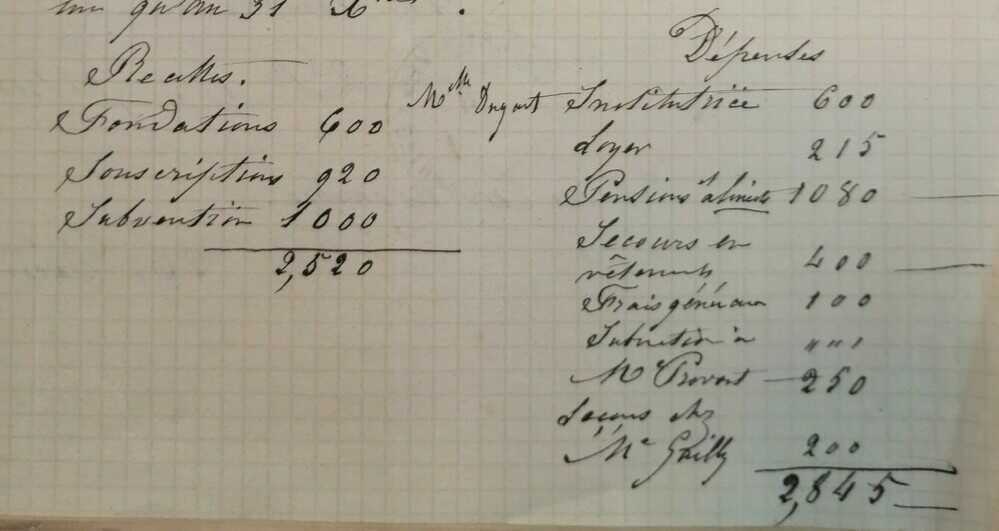 qu'au 31 Xbre.
Recettes.
Fondations 600
Souscriptions 920
Subvention 1000
2,520
Dépenses
Mlle Institutrice 600
Loyer 215
Pensions alimts 1080
Secours en
vêtements 400
Frais généraux 100
Subvention à " " "
Mr Provost 250
Leçons chez
Mr 200
2,845